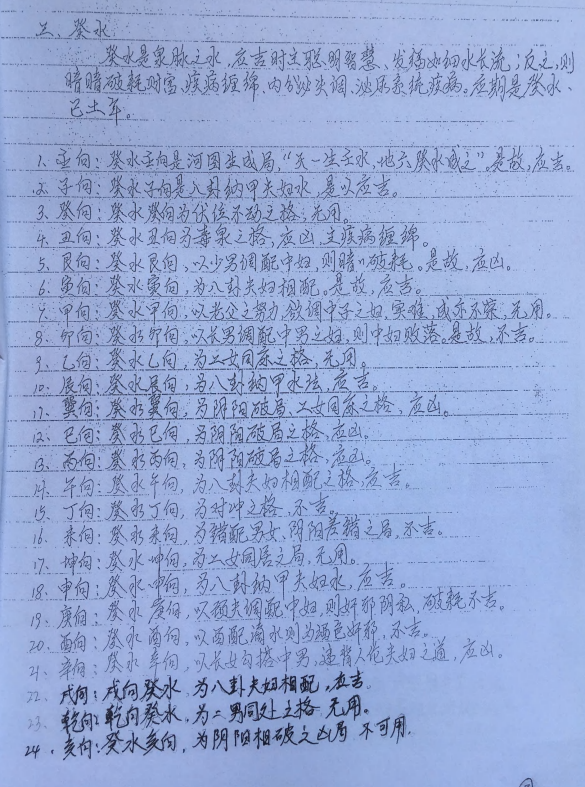 二、癸水
癸水是泉脉之水，应吉时主聪明智慧、发福如细水长流；反之，则
暗暗破耗财富、疾病缠绵、内分泌失调、泌尿系统疾病。应期是癸水、
己土年。
1、壬向：癸水壬向是河图生成局，“天一生壬水，地六癸水成之”。是故，应吉。
2、子向：癸水子向是八卦纳甲夫妇水，是以应吉。
3、癸向：癸水癸向为伏位不动之格，无用。
4、丑向：癸水丑向为毒泉之格，应凶，主疾病缠绵。
5、艮向：癸水艮向，以少男调配中妇，则暗川破耗。是故，应凶。
6、寅向：癸水寅向，为八卦夫妇相配。是故，应吉。
7、甲向：癸水甲向，以老父之努力，欲调中子之妇，实难，成亦不荣，无用。
8、卯向：癸水卯向，以长男调配中男之妇，则中妇败落。是故，不吉。
9、乙向：癸水乙向，为二女同床之格，无用。
10、辰向：癸水辰向，为八卦纳甲水法，应吉。
11、巽向：癸水巽向，为阴阳破局、二女同床之格，应凶。
12、巳向：癸水巳向，为阴阳破局之格，应凶。
13、丙向：癸水丙向，为阴阳破局之格，应凶。
14、午向：癸水午向，为八卦夫妇相配之格，应吉。
15、丁向：癸水丁向，为对冲之格，不吉。
16、未向：癸水未向，为错配男女，阴阳差错之局，不吉。
17、坤向：癸水坤向，为二女同居之局，无用。
18、申向：癸水申向，为八卦纳甲夫妇水，应吉。
19、庚向：癸水庚向，以强夫调配中妇，则奸邪阴私，破耗不吉。
20、酉向：癸水酉向，以酉配滴水则为酒色奸邪，不吉。
21、辛向：癸水辛向，以长女勾搭中男，违背人伦夫妇之道，应凶。
22、戌向：戌向癸水，为八卦夫妇相配，应吉
23、乾向：乾向癸水，为二男同处之格 无用。
24、亥向：癸水亥向，为阴阳相破之凶局 不可用.